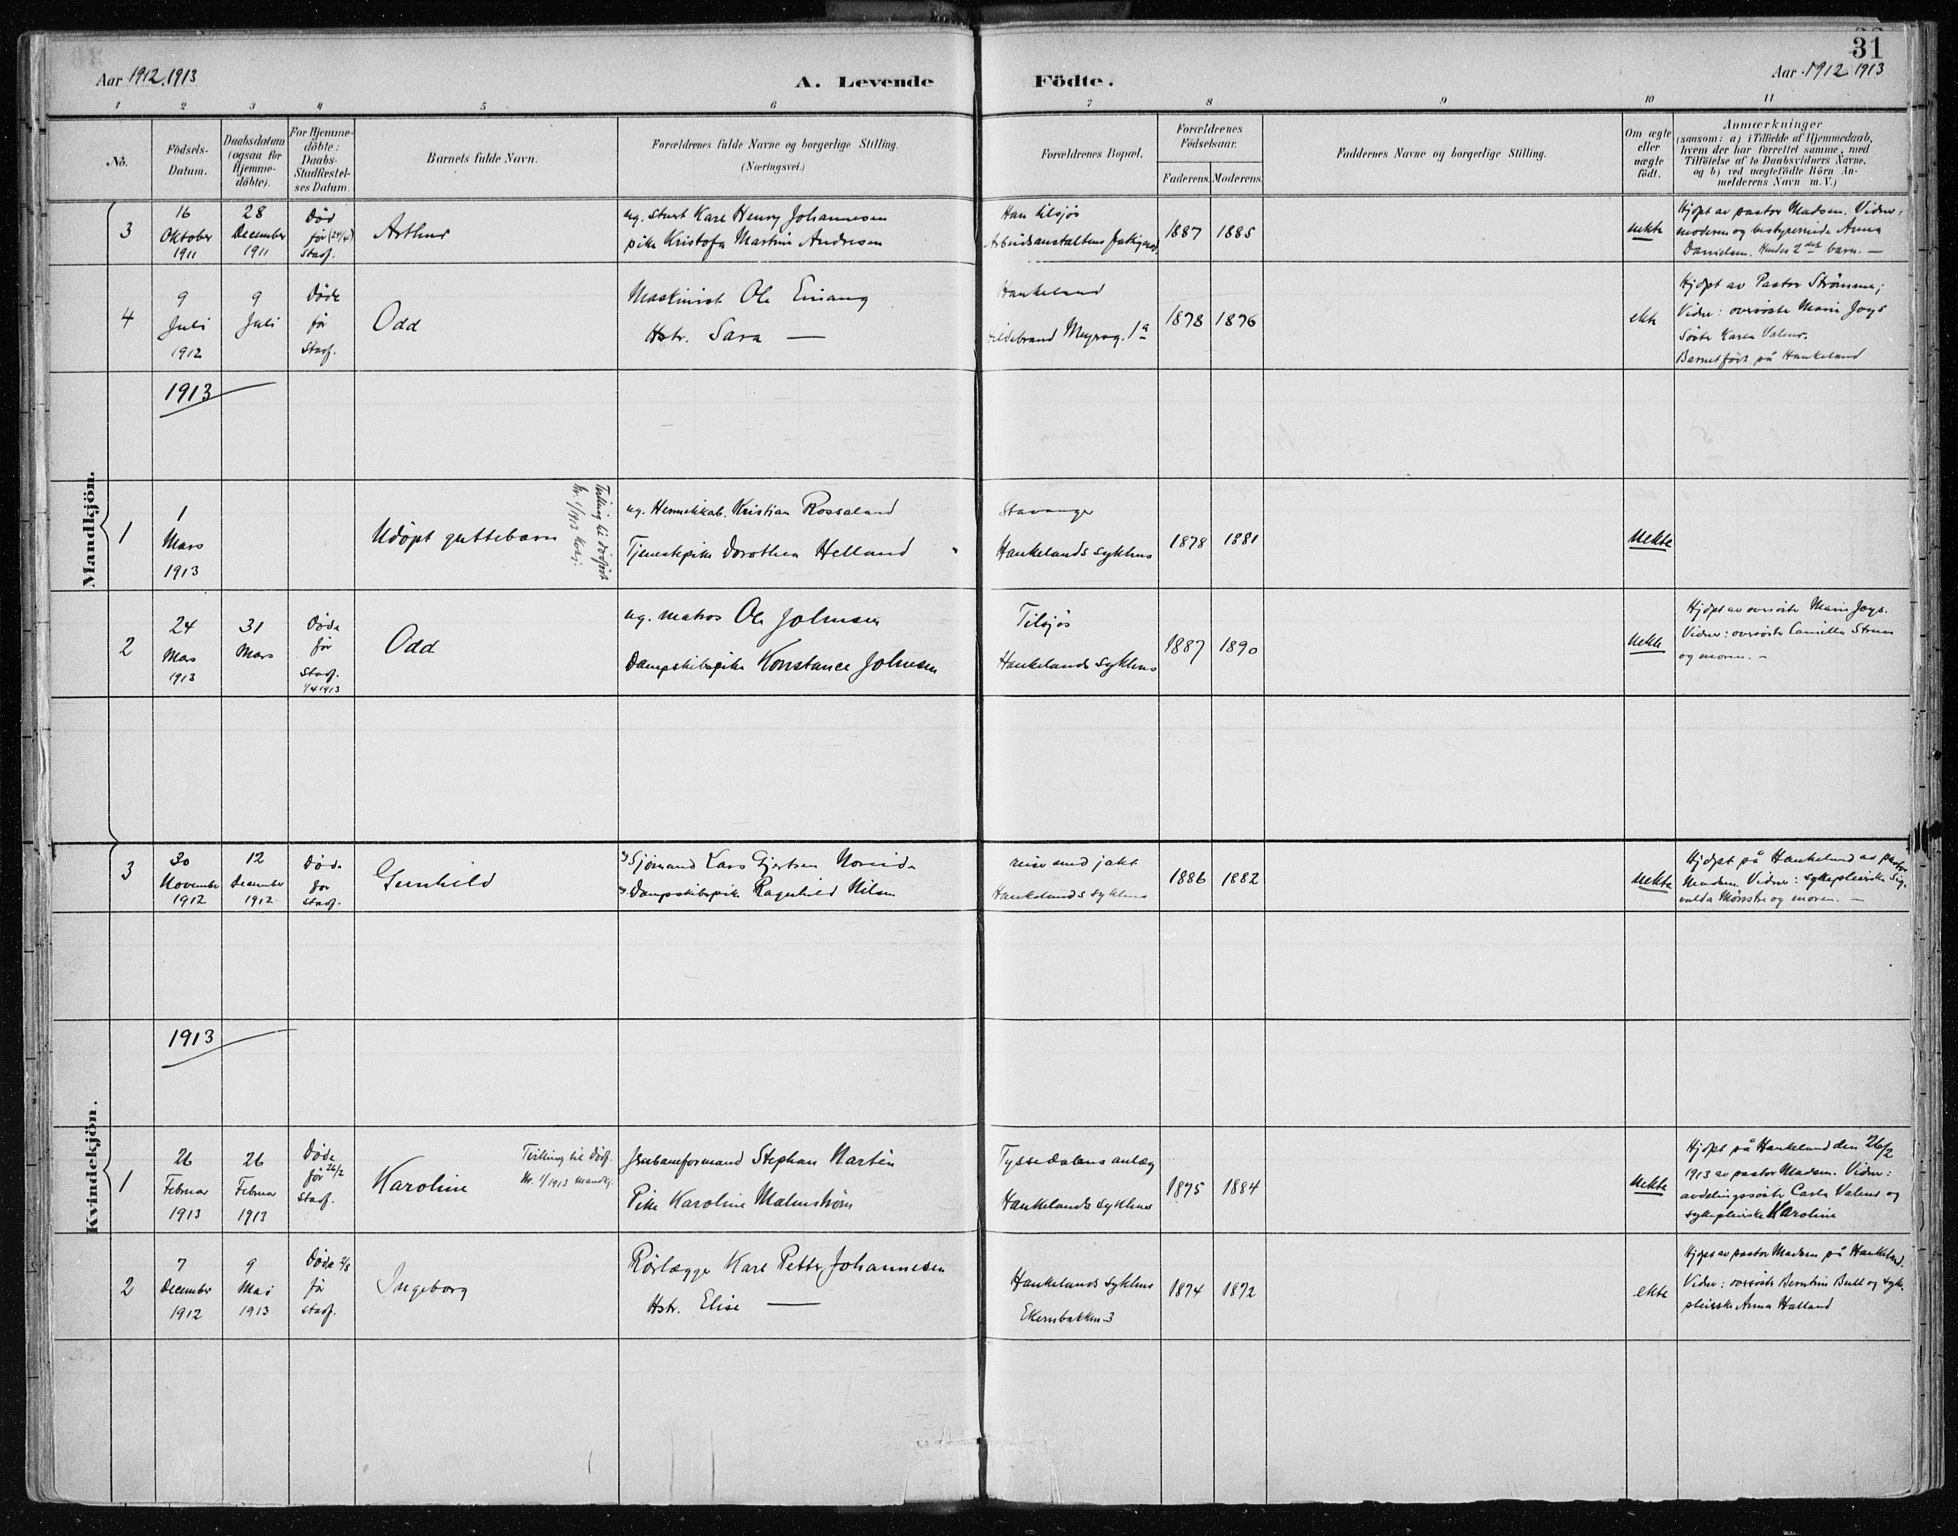 31
Aar 1912. 1913
A. Levende Födte.
Aar 1912 1913
1 2 3 4 5 6 7 8 9 10 11
No.
Födsels-
Datum.
Daabsdatum
(ogsaa for
Hjemme-
döbte).
For Hjemme-
döbte:
Daabs-
Stadfæstel-
ses Datum.
Barnets fulde Navn.
Forældrenes fulde Navne og borgerlige Stilling.
(Næringsvei.)
Forældrenes Bopæl.
Forældrenes
Födselsaar.
Faderens. Moderens.
Faddernes Navne og borgerlige Stilling.
Om ægte
eller
uægte
födt.
Anmærkninger
(saasom: a) i Tilfælde af Hjemmedaab,
hvem der har forrettet samme, med
Tilföielse af to Daabsvidners Navne.
og b) ved uægtefödte Börn An-
melderens Navn m. V.)
Mandkjön.
3
16
Oktober
1911
28
December
1911
Død
før (24/4)
Stadf.
Arthur
ug. stuert Karl Henry Johannesen
pike Kristofa Martine Andresen
Han tilsjøs
Arbeidsanstalten
1887 1885
uekte
Hjdøpt av pastor Madsen. Vidner:
moderen og bestyrerinde Anna
Danielsen. Hendes 2det barn. —
4
9
Juli
1912
9
Juli
Døde
før
Stadf.
Odd
Maskinist Ole Einang
Hstr. Sara —
Haukeland
Hildebrand Meyrsg. 1a
1878 1876
ekte
Hjdøpt av Pastor Strømme;
Vidner: oversøster Marie Joys
Søster Karla Valeur.
Barnet født på Haukeland
1913
1
1
Mars
1913
Udøpt guttebarn
Tvilling til dødfødt
Nr. 1/1913
ug. Hermetikkab. Kristian Rossaland
Tjenestepike Dorothea Helland
Stavanger
Haukelands sykehus
1878 1881
uekte
2
24
Mars
1913
31
Mars
Døde
før
Stadf.
1/4 1913
Odd
ug. matros Ole Johnsen
Dampskibspike Konstance Johnesen
Tilsjøs
Haukelands sykehus
1887 1890
uekte
Hjdøpt av oversøster Marie Joys.
Vidner: oversøster Camilla Struve
og moren. —
3
30
November
1912
12
December
1912
Døde
før
stadf.
Gunhild
Sjømand Lars Gjertsen
Dampskibspike Ragnhild Nilsen
reise med jakt
Haukelands sykehus
1886 1882
uekte
Hjdøpt på Haukeland av pastor
Madsen. Vidner: sykepleierske Sig-
valda Mønstre og moren. —
1913
Kvindekjön.
1
26
Februar
1913
26
Februar
1913
Døde
før 26/2
Stadf.
Karoline
Tvilling til dødf.
Nr. 1/1913 mandkj.
Jernbaneformand Stephan Martin
Pike Karoline Malmstrøm
Tyssedalens anlæg
Haukelands sykehus
1875 1884
uekte
Hjdøpt på Haukeland den 26/2
1913 av pastor Madsen. Vidner:
avdelingssøster Carla Valeur og
sykepleierske Karoline
2
7
December
1912
9
Mai
1913
Døde
før
stadf.
Ingeborg
Rørlægger Karl Petter Johannesen
Hstr. Elise —
Haukelands sykehus
Ekernbakken 3
1874 1872
ekte
Hjdøpt av pastor Madsen på Haukeland.
Vidner: oversøster Berntine Bull og syke-
pleierske Anna Halland